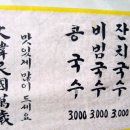 잔치국수 3.000
비빔국수 3.000
콩국수 3.000
맛있게 많이 드세요
大韓民國萬歲